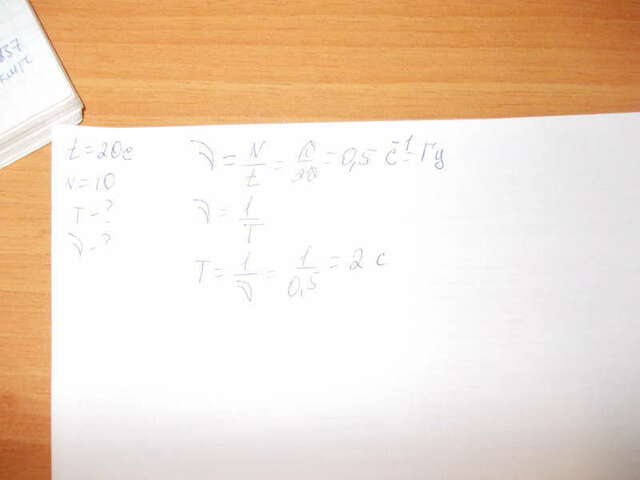 837
t=20c
N=10
T-?
ν-?
ν=N/t=10/20=0,5 c⁻¹=Гц
ν=1/T
T=1/ν=1/0,5=2 c